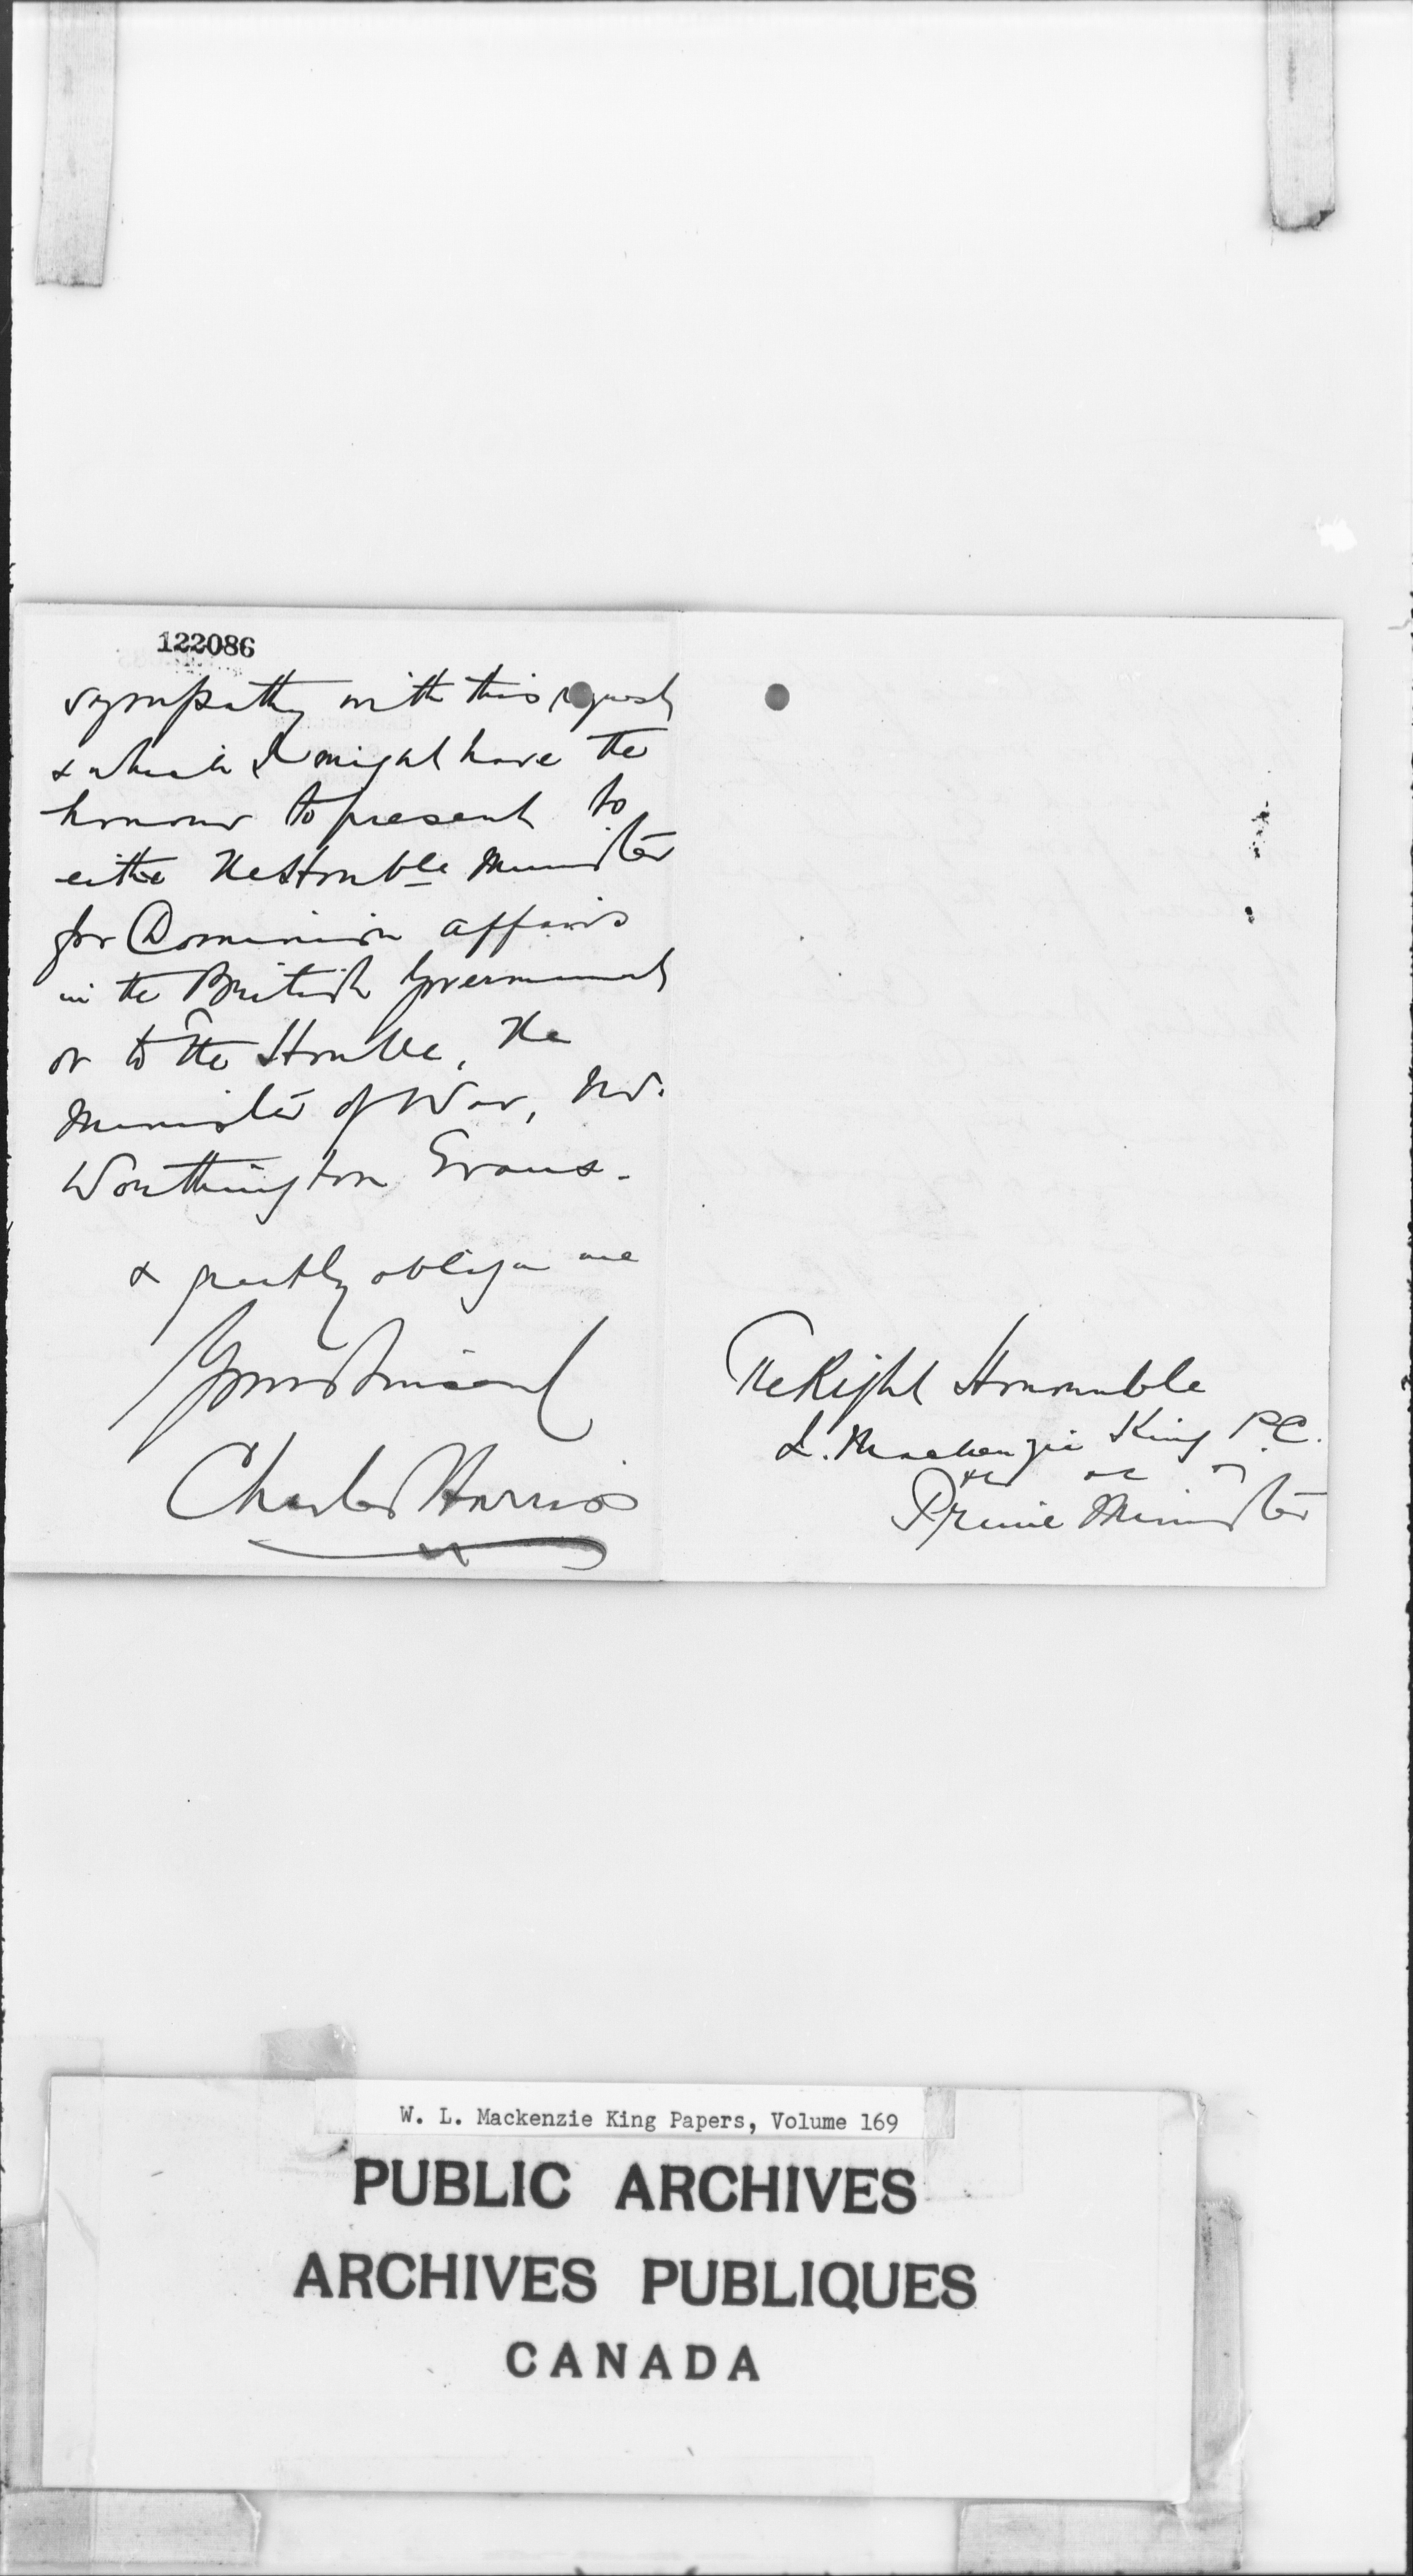 122086
sympathy with this request
& which I might have the
honour to present to
either the Honble Minister
for Dominion affairs
in the British Government
or to the Honble, the
Minister of War, Mr.
Worthington Evans.
& greatly oblige me
Yours sincerely
Charles Harriss
The Right Honourable
L. Mackenzie King P.C.
Prime Minister
W. L. Mackenzie King Papers, Volume 169
PUBLIC ARCHIVES
ARCHIVES PUBLIQUES
CANADA